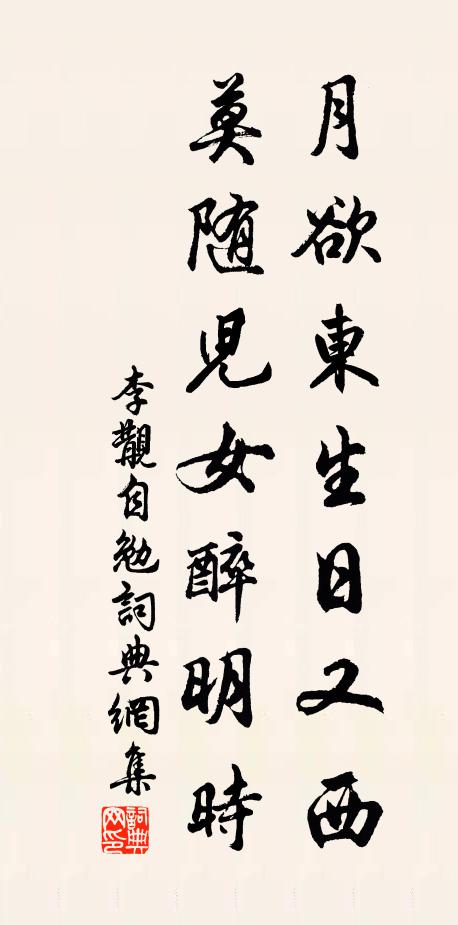 月欲東生日又西
莫随兒女醉明時
李覯自勉詞典網集
詞典網印